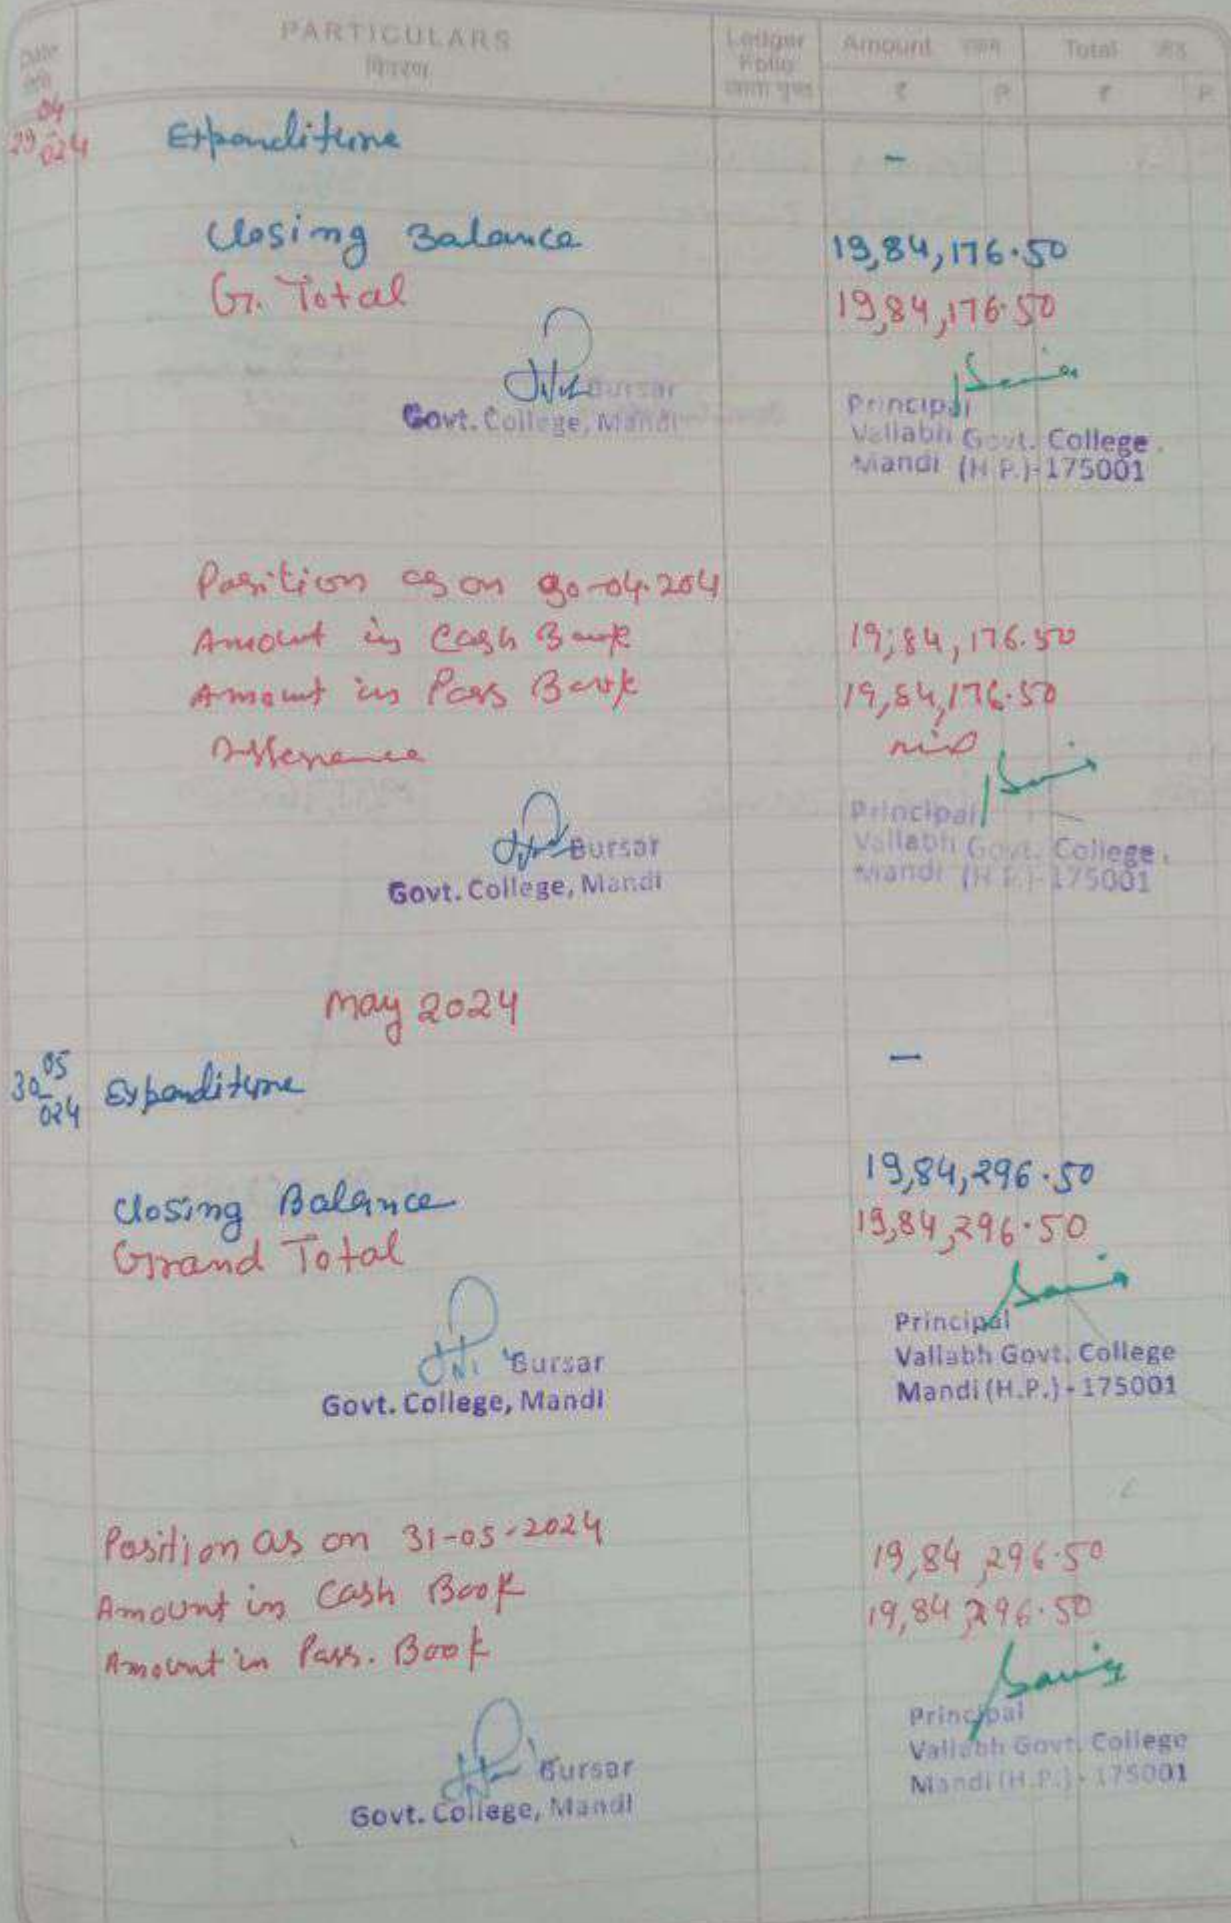 PARTICULARS
विवरण
Date
Ledger
Folio
खाता पृष्ठ
Amount रकम
Total जोड़
₹ P. ₹ P.
29-04-024 Expenditure -
Closing Balance 19,84,176.50
G. Total 19,84,176.50
Bursar
Govt. College, Mandi
Principal
Vallabh Govt. College
Mandi (H.P.)-175001
Position as on 30-04-204
Amount in Cash Book 19,84,176.50
Amount in Pass Book 19,84,176.50
Difference nil
Bursar
Govt. College, Mandi
Principal
Vallabh Govt. College
Mandi (H.P.)-175001
May 2024
30-05-024 Expenditure -
Closing Balance 19,84,296.50
Grand Total 19,84,296.50
Bursar
Govt. College, Mandi
Principal
Vallabh Govt. College
Mandi (H.P.) - 175001
Position as on 31-05-2024
Amount in Cash Book 19,84,296.50
Amount in Pass. Book 19,84,296.50
Bursar
Govt. College, Mandi
Principal
Vallabh Govt. College
Mandi (H.P.) - 175001